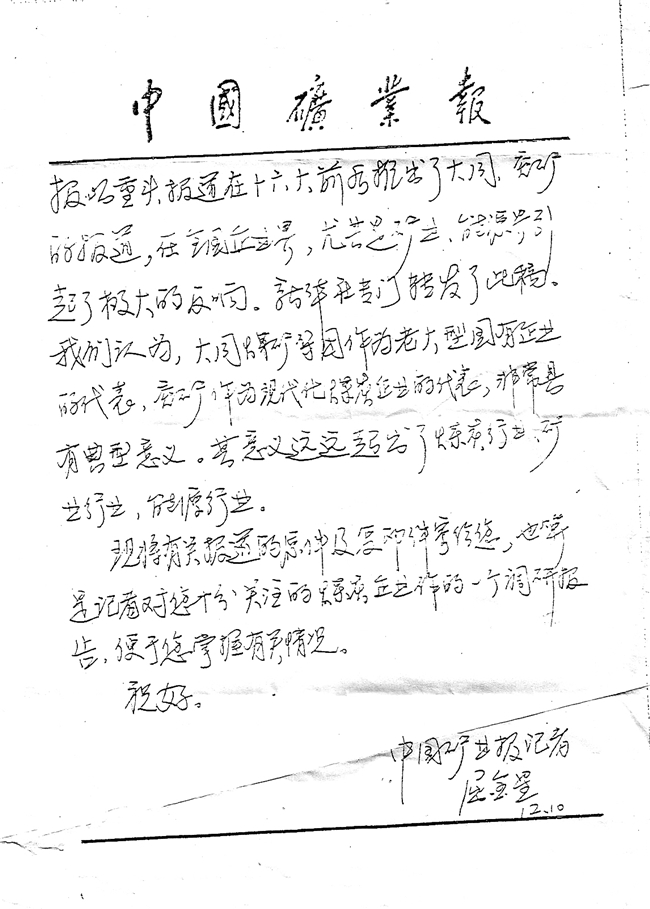 中國礦業報
报以重头报道在十六大前后推出了大同、兖矿
的报道,在全国企业界,尤其是矿业、能源界引
起了极大的反响。新华社专门转发了此稿。
我们认为,大同煤矿集团作为老大型国有企业
的代表,兖矿作为现代化煤炭企业的代表,非常具
有典型意义。其意义远远超出了煤炭行业、矿
业行业,能源行业。
现将有关报道的原件及复印件寄给您,也算
是记者对您十分关注的煤炭企业作的一个调研报
告,便于您掌握有关情况。
祝好。
中国矿业报记者
屈金星
12.10